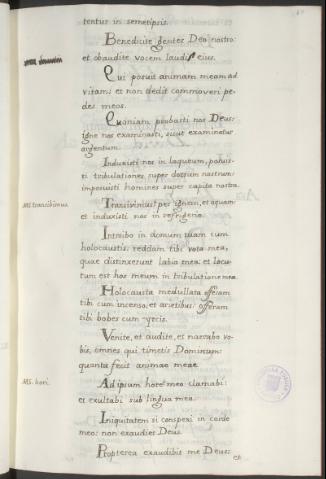 tentur in semetipsis.
Benedicite gentes Deo nostro:
et obaudite vocem laudis ejus.
Qui posuit animam meam ad
vitam: et non dedit commoveri pe-
des meos.
Quoniam probasti nos Deus:
igne nos examinasti, sicut examinatur
argentum.
Induxisti nos in laqueum, posuis-
ti tribulationes super dorsum nostrum:
imposuisti homines super capita nostra
MS. transibimus
Transivimus per ignem, et aquam:
et induxisti nos in refrigerio.
Introibo in domum tuam cum
holocaustis: reddam tibi vota mea,
quae distinxerunt labia mea: et locu-
tum est hos meum in tribulatione mea.
Holocausta medullata offeram
tibi cum incenso, et arietibus: offeram
tibi bobes cum yrcis.
Venite, et audite, et narrabo vo-
bis, omnes qui timetis Dominum:
quanta fecit animae meae.
MS. hori.
Ad ipsum hore meo clamabi:
et exultabi sub lingua mea.
Iniquitatem si conspexi in corde
meo: non exaudiet Deus.
Propterea exaudibit me Deus:
et